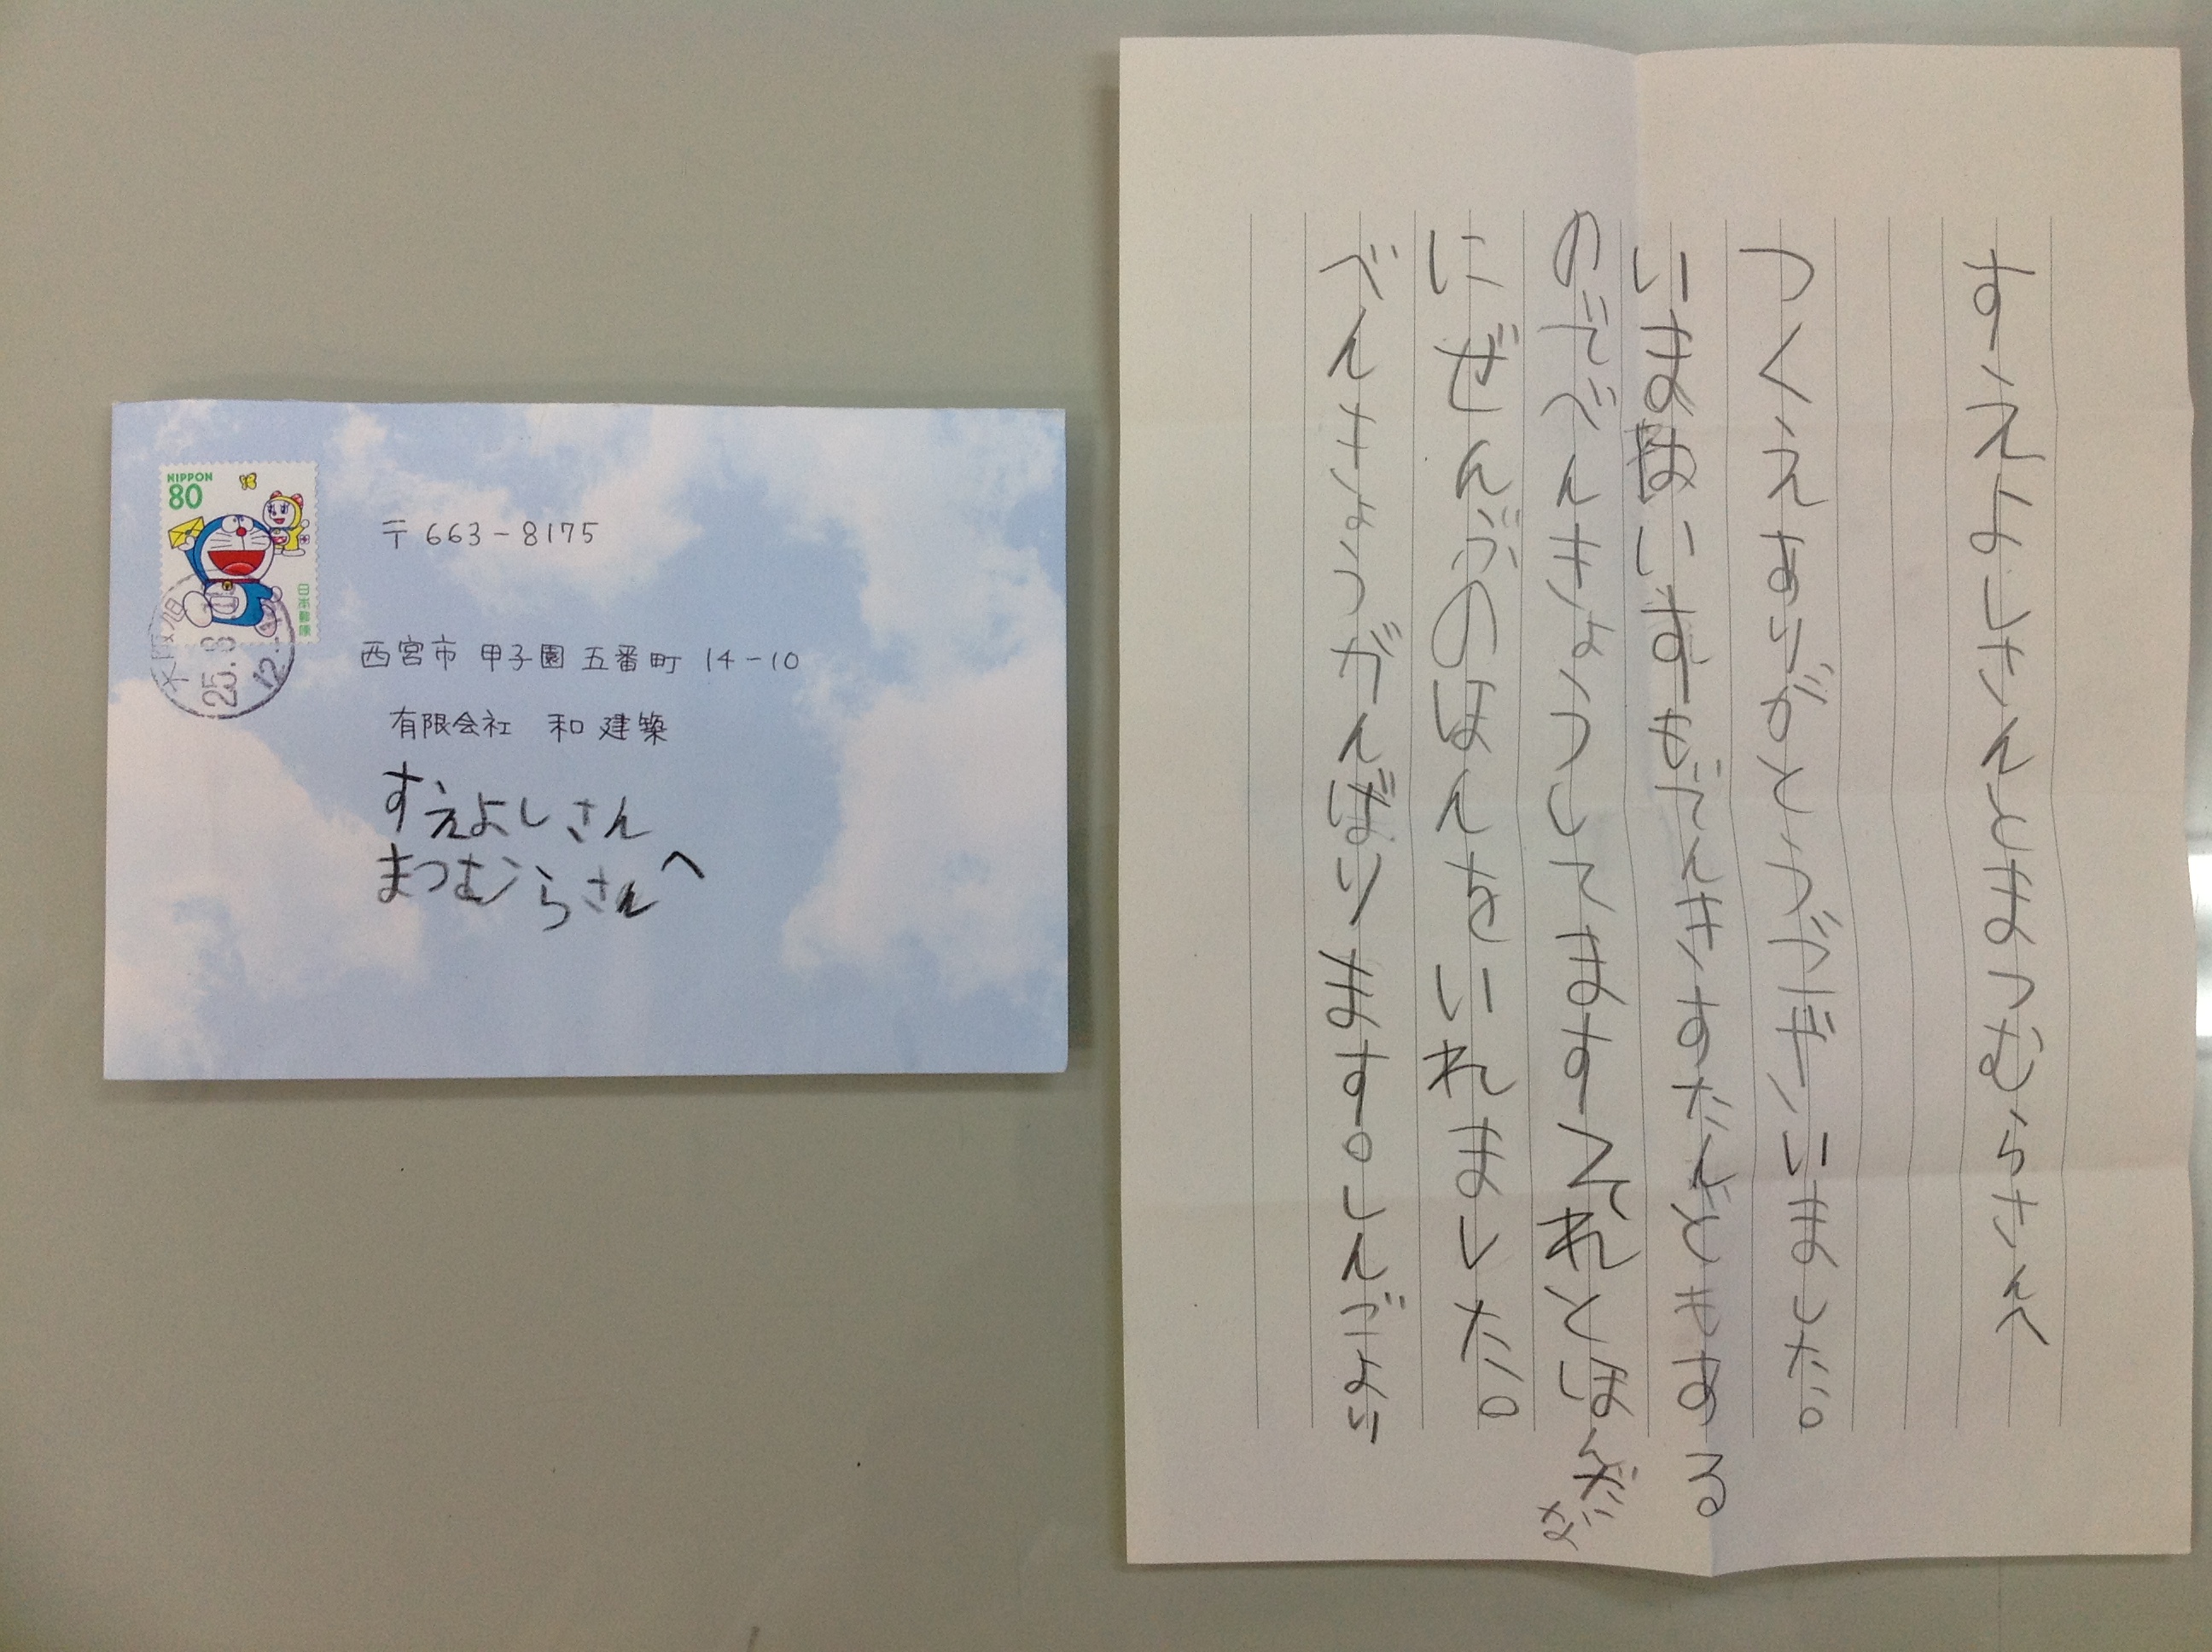 NIPPON
80
日本郵便
大阪旭
25.8
12-
〒663-8175
西宮市 甲子園 五番町 14-10
有限会社 和建築
すえよしさん
まつむらさんへ
すえよしさんとまつむらさんへ
つくえありがとうございました。
いまはいすもでんきすたんどもある
のでべんきょうしてますそれとほんだな
にぜんぶのほんをいれました。
べんきょうがんばります。しんごより